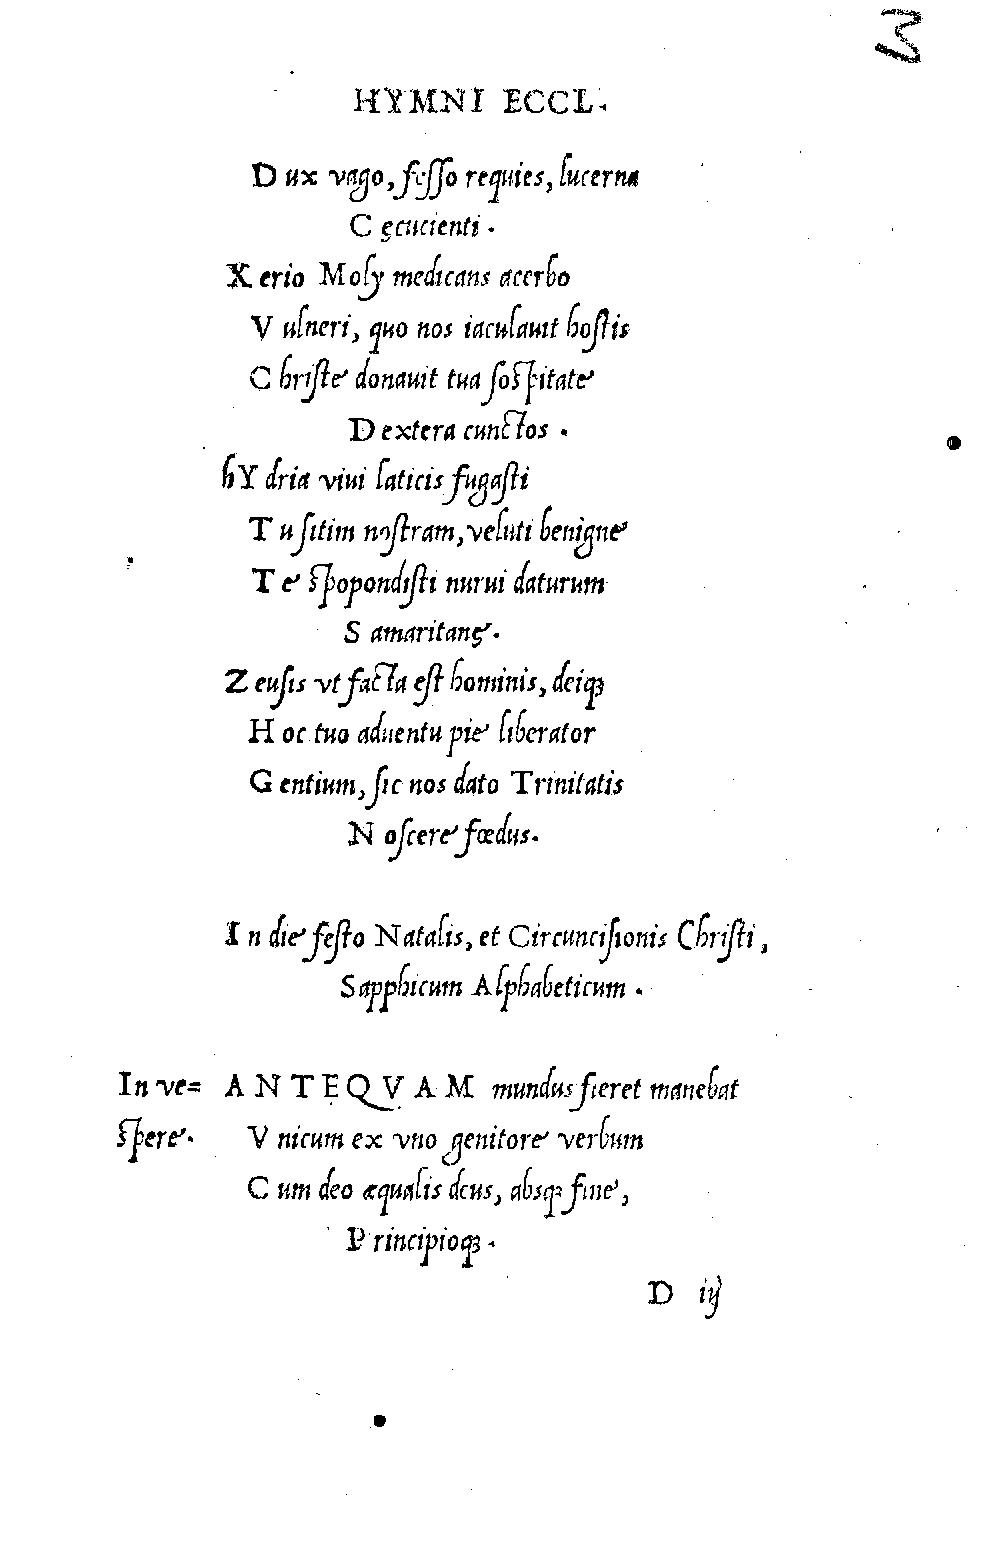 3
HYMNI ECCL.
Dux vago, fesso requies, lucerna
Cęcucienti.
Xerio Moly medicans acerbo
Vulneri, quo nos iaculauit hostis
Christe donauit tua sospitate
Dextera cunctos.
hYdria viui laticis fugasti
Tu sitim nostram, veluti benigne
Te spopondisti nurui daturum
Samaritanę.
Zeusis vt facta est hominis, deiqꝫ
Hoc tuo aduentu pie liberator
Gentium, sic nos dato Trinitatis
Noscere fœdus.
In die festo Natalis, et Circuncisionis Christi,
Sapphicum Alphabeticum.
In ve= ANTEQVAM mundus fieret manebat
spere. Vnicum ex vno genitore verbum
Cum deo æqualis deus, absqꝫ fine,
Principioqꝫ.
D iij